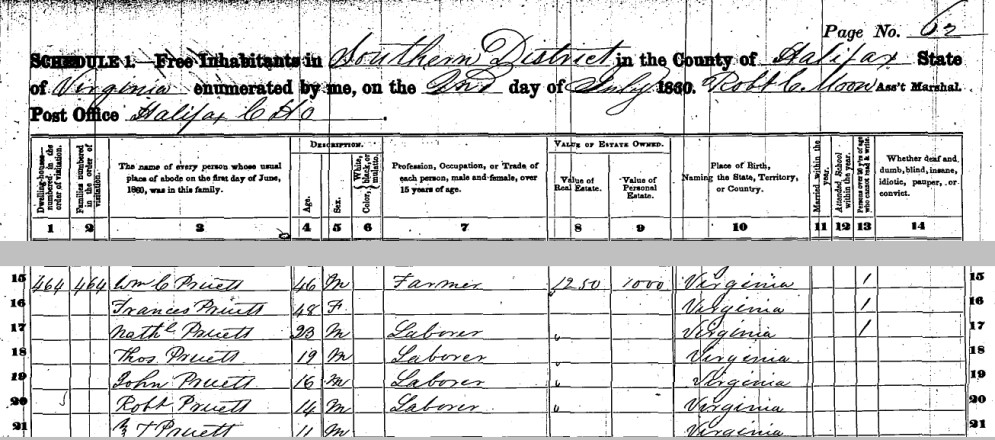 Page No. 62
SCHEDULE 1.—Free Inhabitants in Southern District in the County of Halifax State
of Virginia enumerated by me, on the 2nd day of July 1860. Robt C. Moon Ass't Marshal.
Post Office Halifax C Ho.
Dwelling-houses numbered in the order of visitation.
Families numbered in the order of visitation.
The name of every person whose usual place of abode on the first day of June, 1860, was in this family.
DESCRIPTION.
Age.
Sex.
Color, {White, black, or mulatto.
Profession, Occupation, or Trade of each person, male and female, over 15 years of age.
VALUE OF ESTATE OWNED.
Value of Real Estate.
Value of Personal Estate.
Place of Birth, Naming the State, Territory, or Country.
Married within the year.
Attended School within the year.
Persons over 20 y'rs of age who cannot read & write.
Whether deaf and dumb, blind, insane, idiotic, pauper, or convict.
1 2 3 4 5 6 7 8 9 10 11 12 13 14
15 464 464 Wm C Pruett 46 M Farmer 1250 1000 Virginia 1 15
16 Frances Pruett 48 F Virginia 1 16
17 Nathl Pruett 23 M Laborer Virginia 1 17
18 Thos Pruett 19 M Laborer Virginia 18
19 John Pruett 16 M Laborer Virginia 19
20 Robt Pruett 14 M Laborer Virginia 20
21 T Pruett 11 M Virginia 21